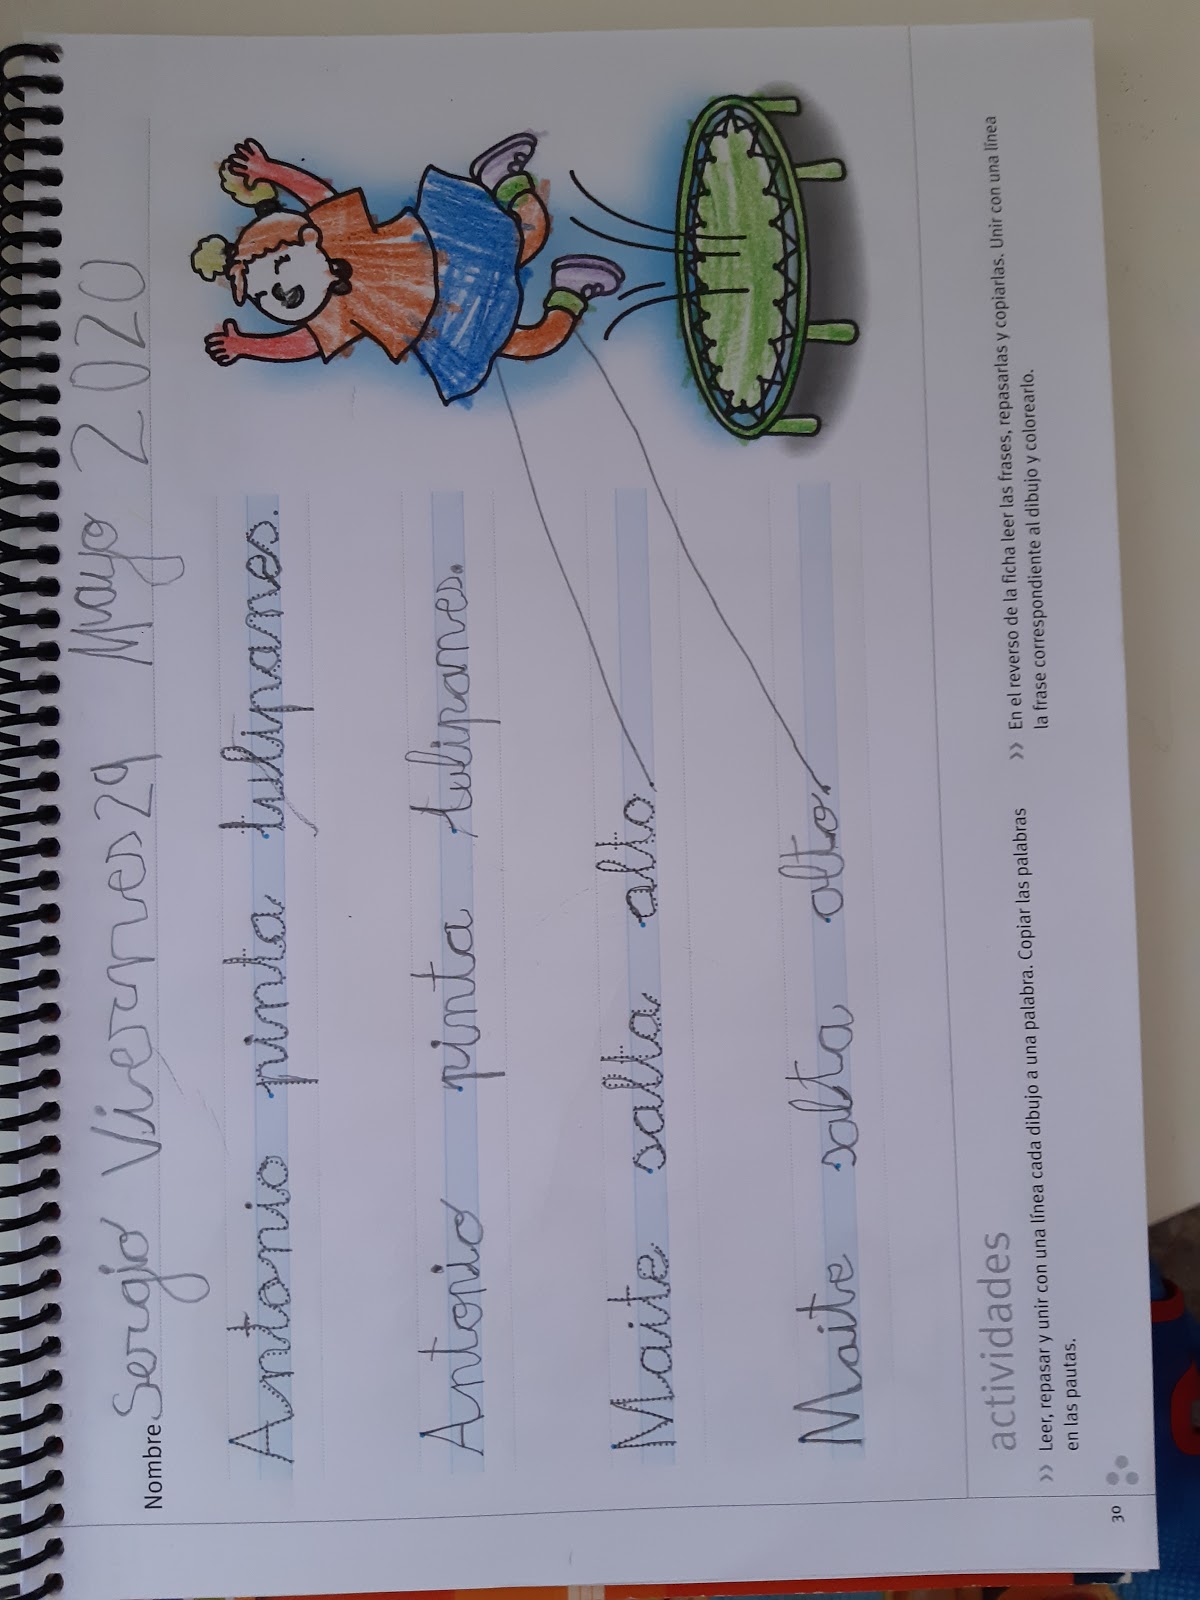 Nombre Sergio Viernes 29 Mayo 2020
Antonio pinta tulipanes.
Antonio pinta tulipanes.
Maite salta alto.
Maite salta alto.
actividades
>> Leer, repasar y unir con una línea cada dibujo a una palabra. Copiar las palabras
en las pautas.
>> En el reverso de la ficha leer las frases, repasarlas y copiarlas. Unir con una línea
la frase correspondiente al dibujo y colorearlo.
30